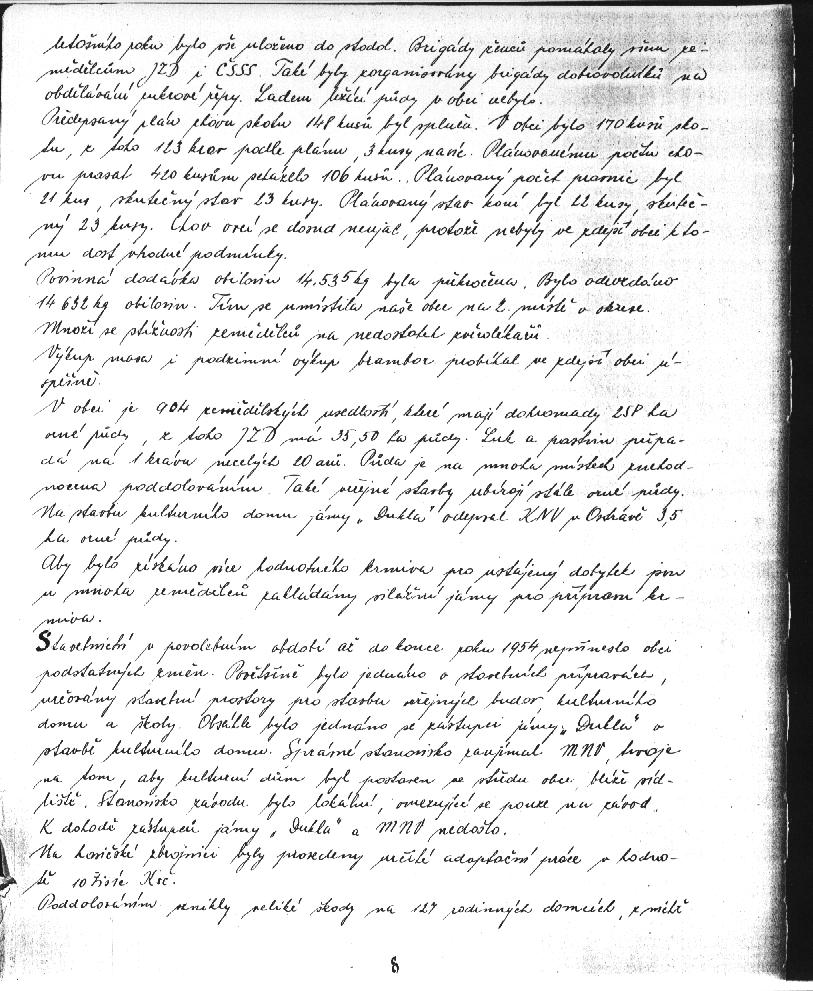 letošního roku bylo vše uloženo do stodol. Brigády ženců pomáhaly všem ze-
mědělcům JZD i ČSSS. Také byly zorganisovány brigády dobrovolníků na
obdělávání cukrové řepy. Ladem ležící půdy v obci nebylo.
Předepsaný plán chovu skotu 148 kusů byl splněn. V obci bylo 170 kusů sko-
tu, z toho 123 krav podle plánu, 3 kusy navíc. Plánovanému počtu cho-
vu prasat 420 kusům scházelo 106 kusů. Plánovaný počet prasnic byl
21 kus, skutečný stav 23 kusy. Plánovaný stav koní byl 22 kusy, skuteč-
ný 23 kusy. Chov ovcí se dosud neujal, protože nebyly ve zdejší obci k to-
mu dost vhodné podmínky.
Povinná dodávka obilovin 14.535 kg byla překročena. Bylo odevzdáno
14 632 kg obilovin. Tím se umístila naše obec na 2. místě v okrese.
Množí se stížnosti zemědělců na nedostatek zvěrolékařů.
Výkup masa i podzimní výkup brambor probíhal ve zdejší obci ú-
spěšně.
V obci je 904 zemědělských usedlostí, které mají dohromady 258 ha
orné půdy, z toho JZD má 35,50 ha půdy. Luk a pastvin připa-
dá na 1 krávu necelých 20 arů. Půda je na mnoha místech znehod-
nocena poddolováním. Také veřejné stavby ubírají stále orné půdy.
Na stavbu kulturního domu jámy „Dukla" odepsal KNV v Ostravě 3,5
ha orné půdy.
Aby bylo získáno více hodnotného krmiva pro ustájený dobytek jsou
u mnoha zemědělců zakládány silážní jámy pro přípravu kr-
miva.
Stavebnictví v povolebním období až do konce roku 1954 nepřineslo obci
podstatných změn. Povětšině bylo jednáno o stavebních přípravách,
určovány stavební prostory pro stavbu veřejných budov, kulturního
domu a školy. Obsáhle bylo jednáno se zástupci jámy „Dukla" o
stavbě kulturního domu. Správné stanovisko zaujímal MNV, trvaje
na tom, aby kulturní dům byl postaven ve středu obce, blíže síd-
liště. Stanovisko závodu bylo lokální, omezující se pouze na závod.
K dohodě zástupců jámy „Dukla" a MNV nedošlo.
Na hasičské zbrojnici byly provedeny určité adaptační práce v hodno-
tě 10 tisíc Kčs.
Poddolováním vznikly veliké škody na 127 rodinných domcích, z nichž
8